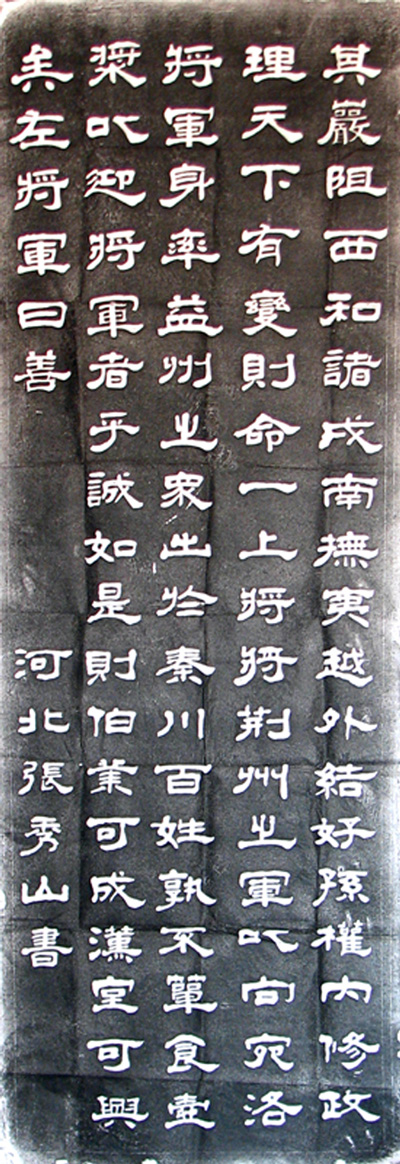 其巖阻西和諸戎南撫夷越外結好孫權內修政
理天下有變則命一上將將荊州之軍以向宛洛
將軍身率益州之衆出於秦川百姓孰不簞食壺
漿以迎將軍者乎誠如是則伯業可成漢室可興
矣左將軍曰善 河北張秀山書